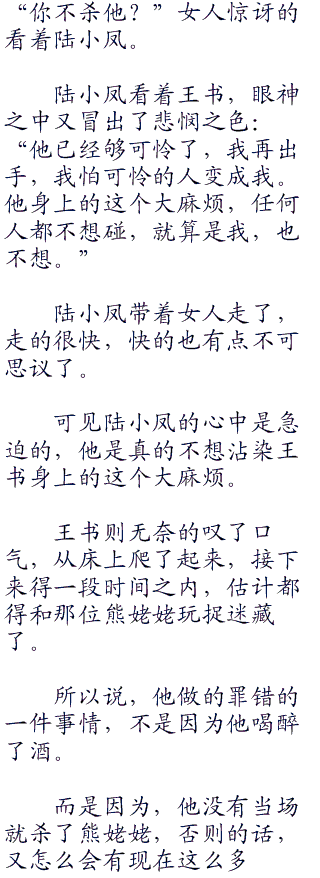 “你不杀他？”女人惊讶的
看着陆小凤。
陆小凤看着王书，眼神
之中又冒出了悲悯之色：
“他已经够可怜了，我再出
手，我怕可怜的人变成我。
他身上的这个大麻烦，任何
人都不想碰，就算是我，也
不想。”
陆小凤带着女人走了，
走的很快，快的也有点不可
思议了。
可见陆小凤的心中是急
迫的，他是真的不想沾染王
书身上的这个大麻烦。
王书则无奈的叹了口
气，从床上爬了起来，接下
来得一段时间之内，估计都
得和那位熊姥姥玩捉迷藏
了。
所以说，他做的罪错的
一件事情，不是因为他喝醉
了酒。
而是因为，他没有当场
就杀了熊姥姥，否则的话，
又怎么会有现在这么多